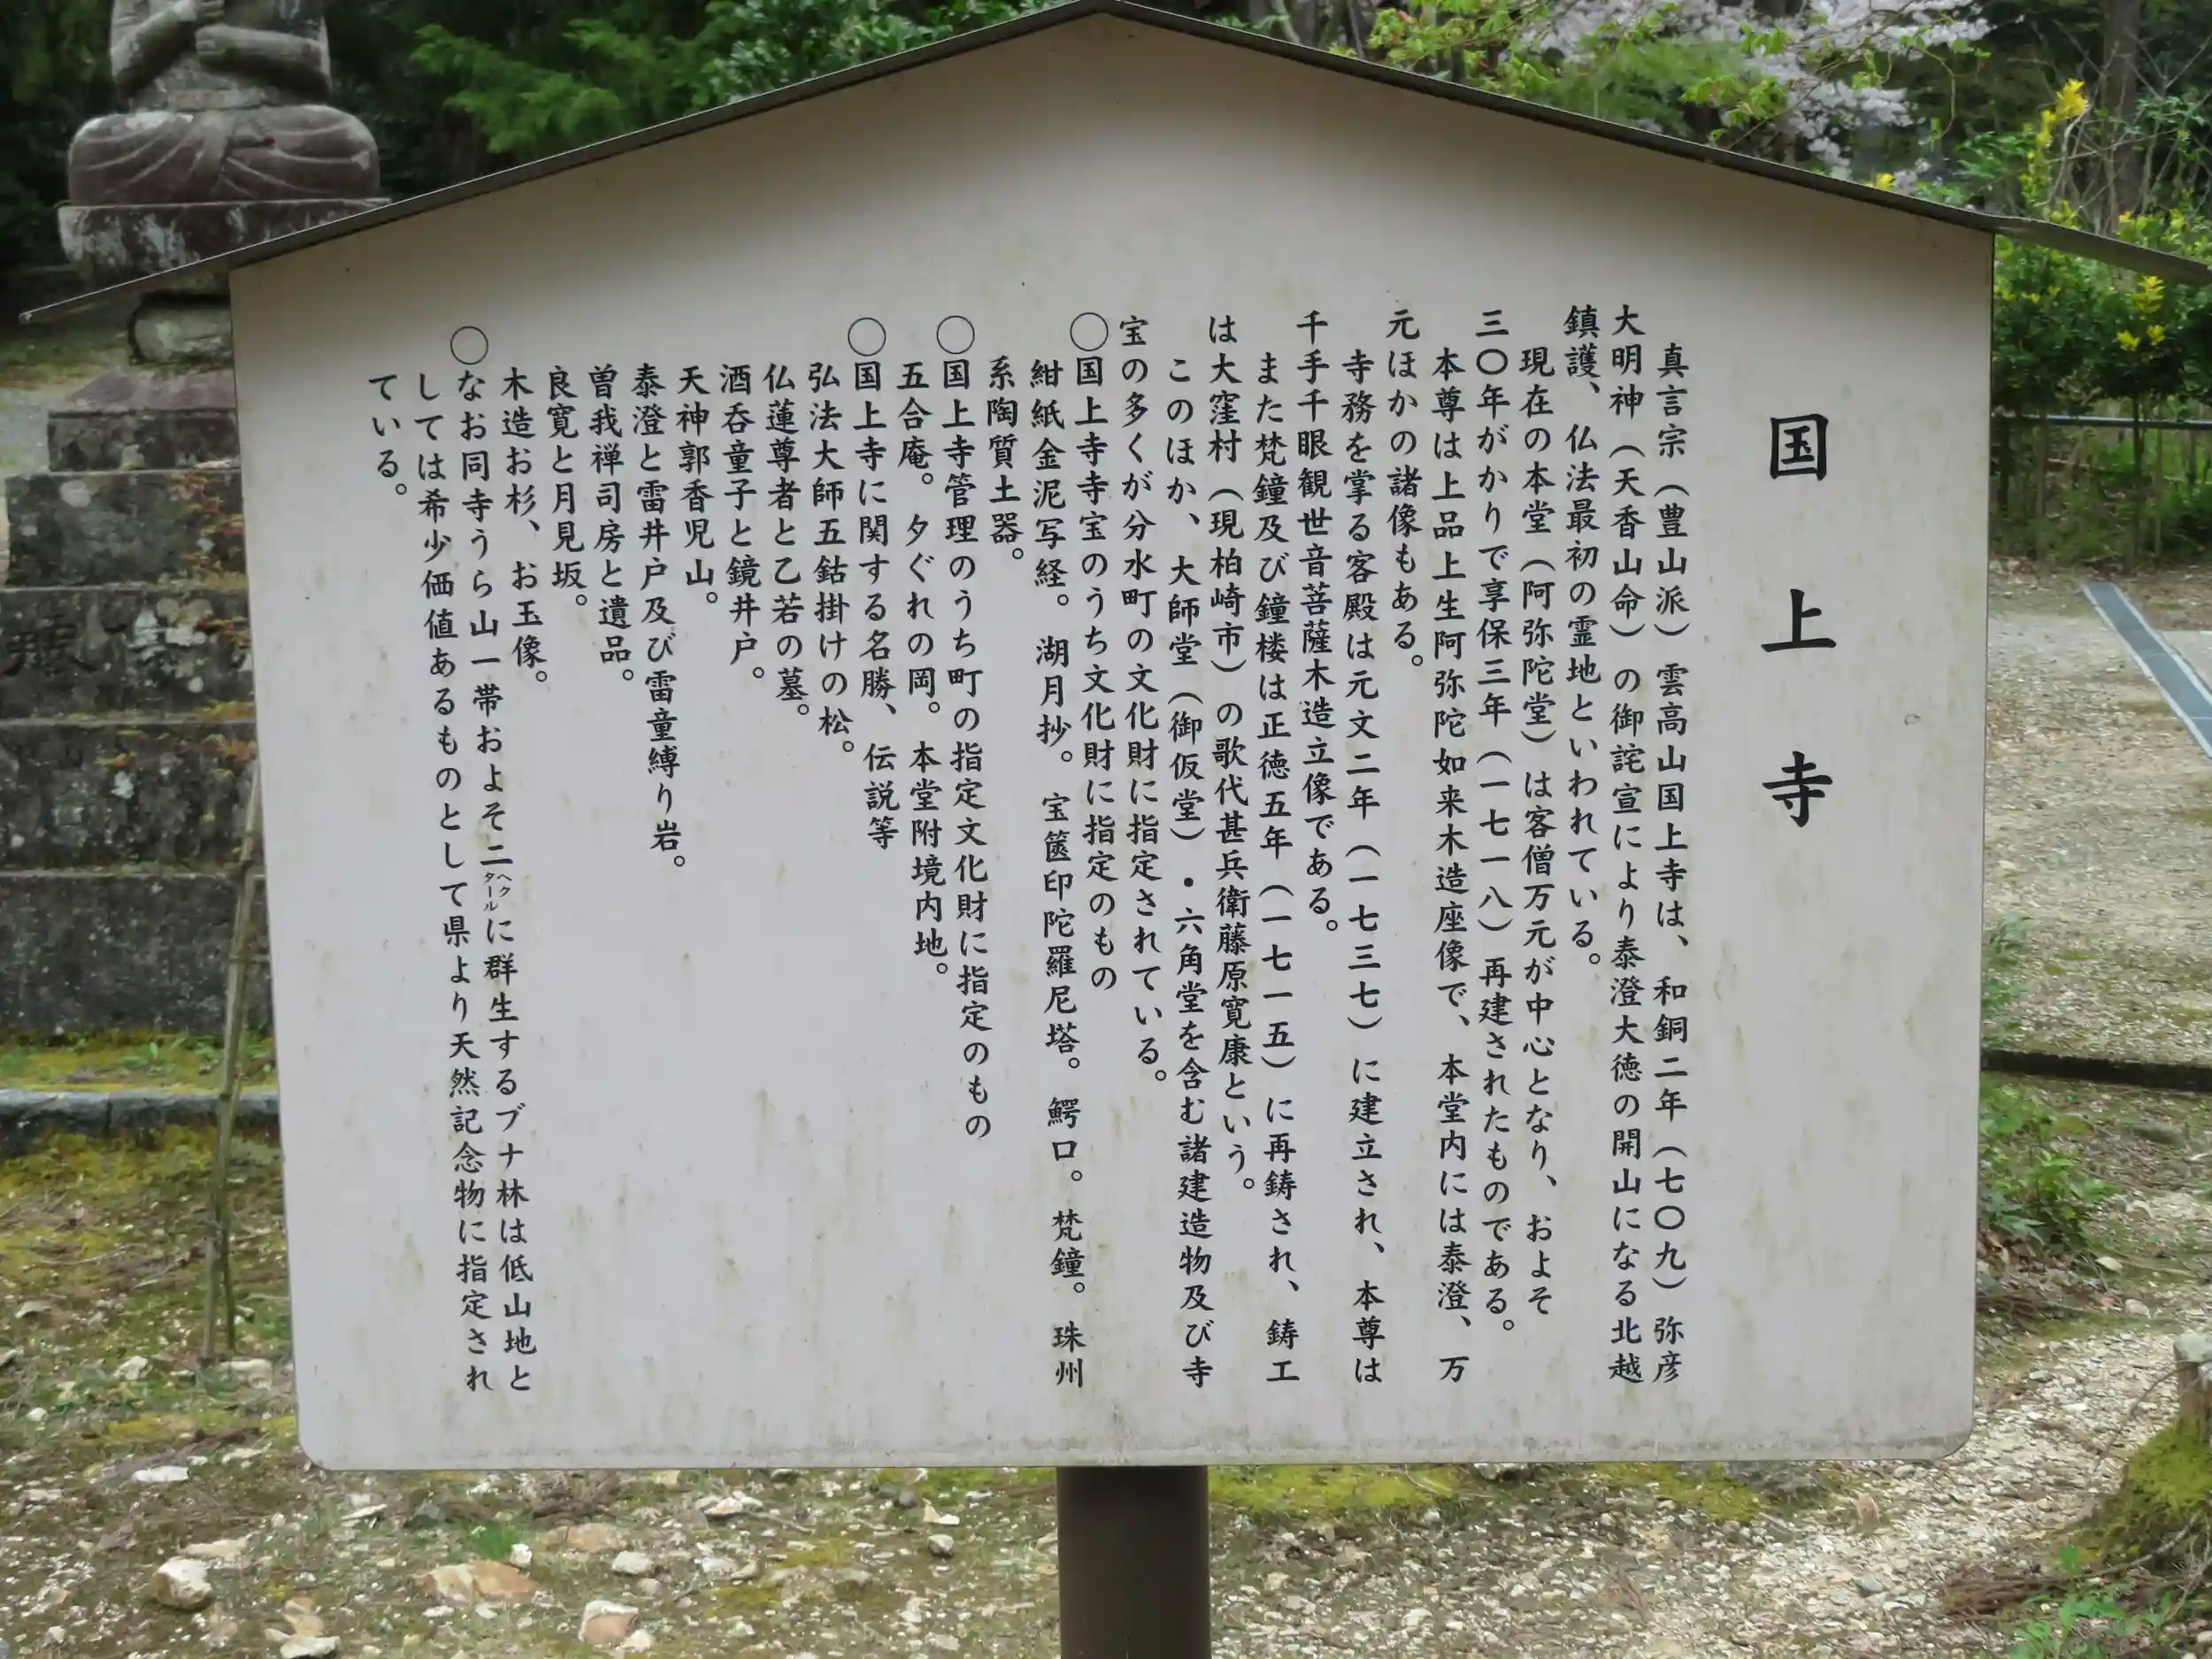 国上寺
真言宗（豊山派）雲高山国上寺は、和銅二年（七〇九）弥彦
大明神（天香山命）の御詫宣により泰澄大徳の開山になる北越
鎮護、仏法最初の霊地といわれている。
現在の本堂（阿弥陀堂）は客僧万元が中心となり、およそ
三〇年がかりで享保三年（一七一八）再建されたものである。
本尊は上品上生阿弥陀如来木造座像で、本堂内には泰澄、万
元ほかの諸像もある。
寺務を掌る客殿は元文二年（一七三七）に建立され、本尊は
千手千眼観世音菩薩木造立像である。
また梵鐘及び鐘楼は正徳五年（一七一五）に再鋳され、鋳工
は大窪村（現柏崎市）の歌代甚兵衛藤原寛康という。
このほか、大師堂（御仮堂）・六角堂を含む諸建造物及び寺
宝の多くが分水町の文化財に指定されている。
○国上寺寺宝のうち文化財に指定のもの
紺紙金泥写経。湖月抄。宝篋印陀羅尼塔。鰐口。梵鐘。珠州
系陶質土器。
○国上寺管理のうち町の指定文化財に指定のもの
五合庵。夕ぐれの岡。本堂附境内地。
○国上寺に関する名勝、伝説等
弘法大師五鈷掛けの松。
仏蓮尊者と乙若の墓。
酒呑童子と鏡井戸。
天神郭香児山。
泰澄と雷井戸及び雷童縛り岩。
曽我禅司房と遺品。
良寛と月見坂。
木造お杉、お玉像。
○なお同寺うら山一帯およそ二ヘクタールに群生するブナ林は低山地と
しては希少価値あるものとして県より天然記念物に指定され
ている。